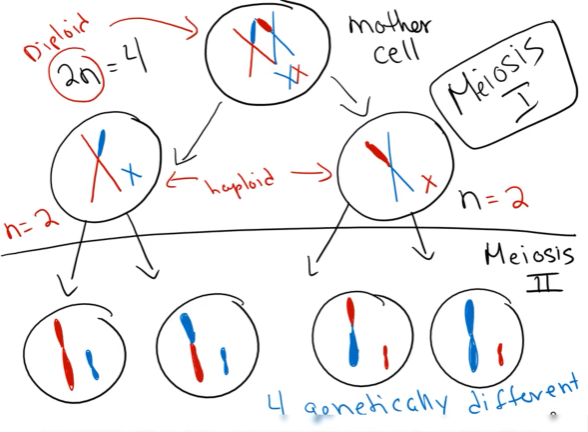 Diploid
2n = 4
mother
cell
Meiosis
I
haploid
n = 2
n = 2
Meiosis
II
4 genetically different